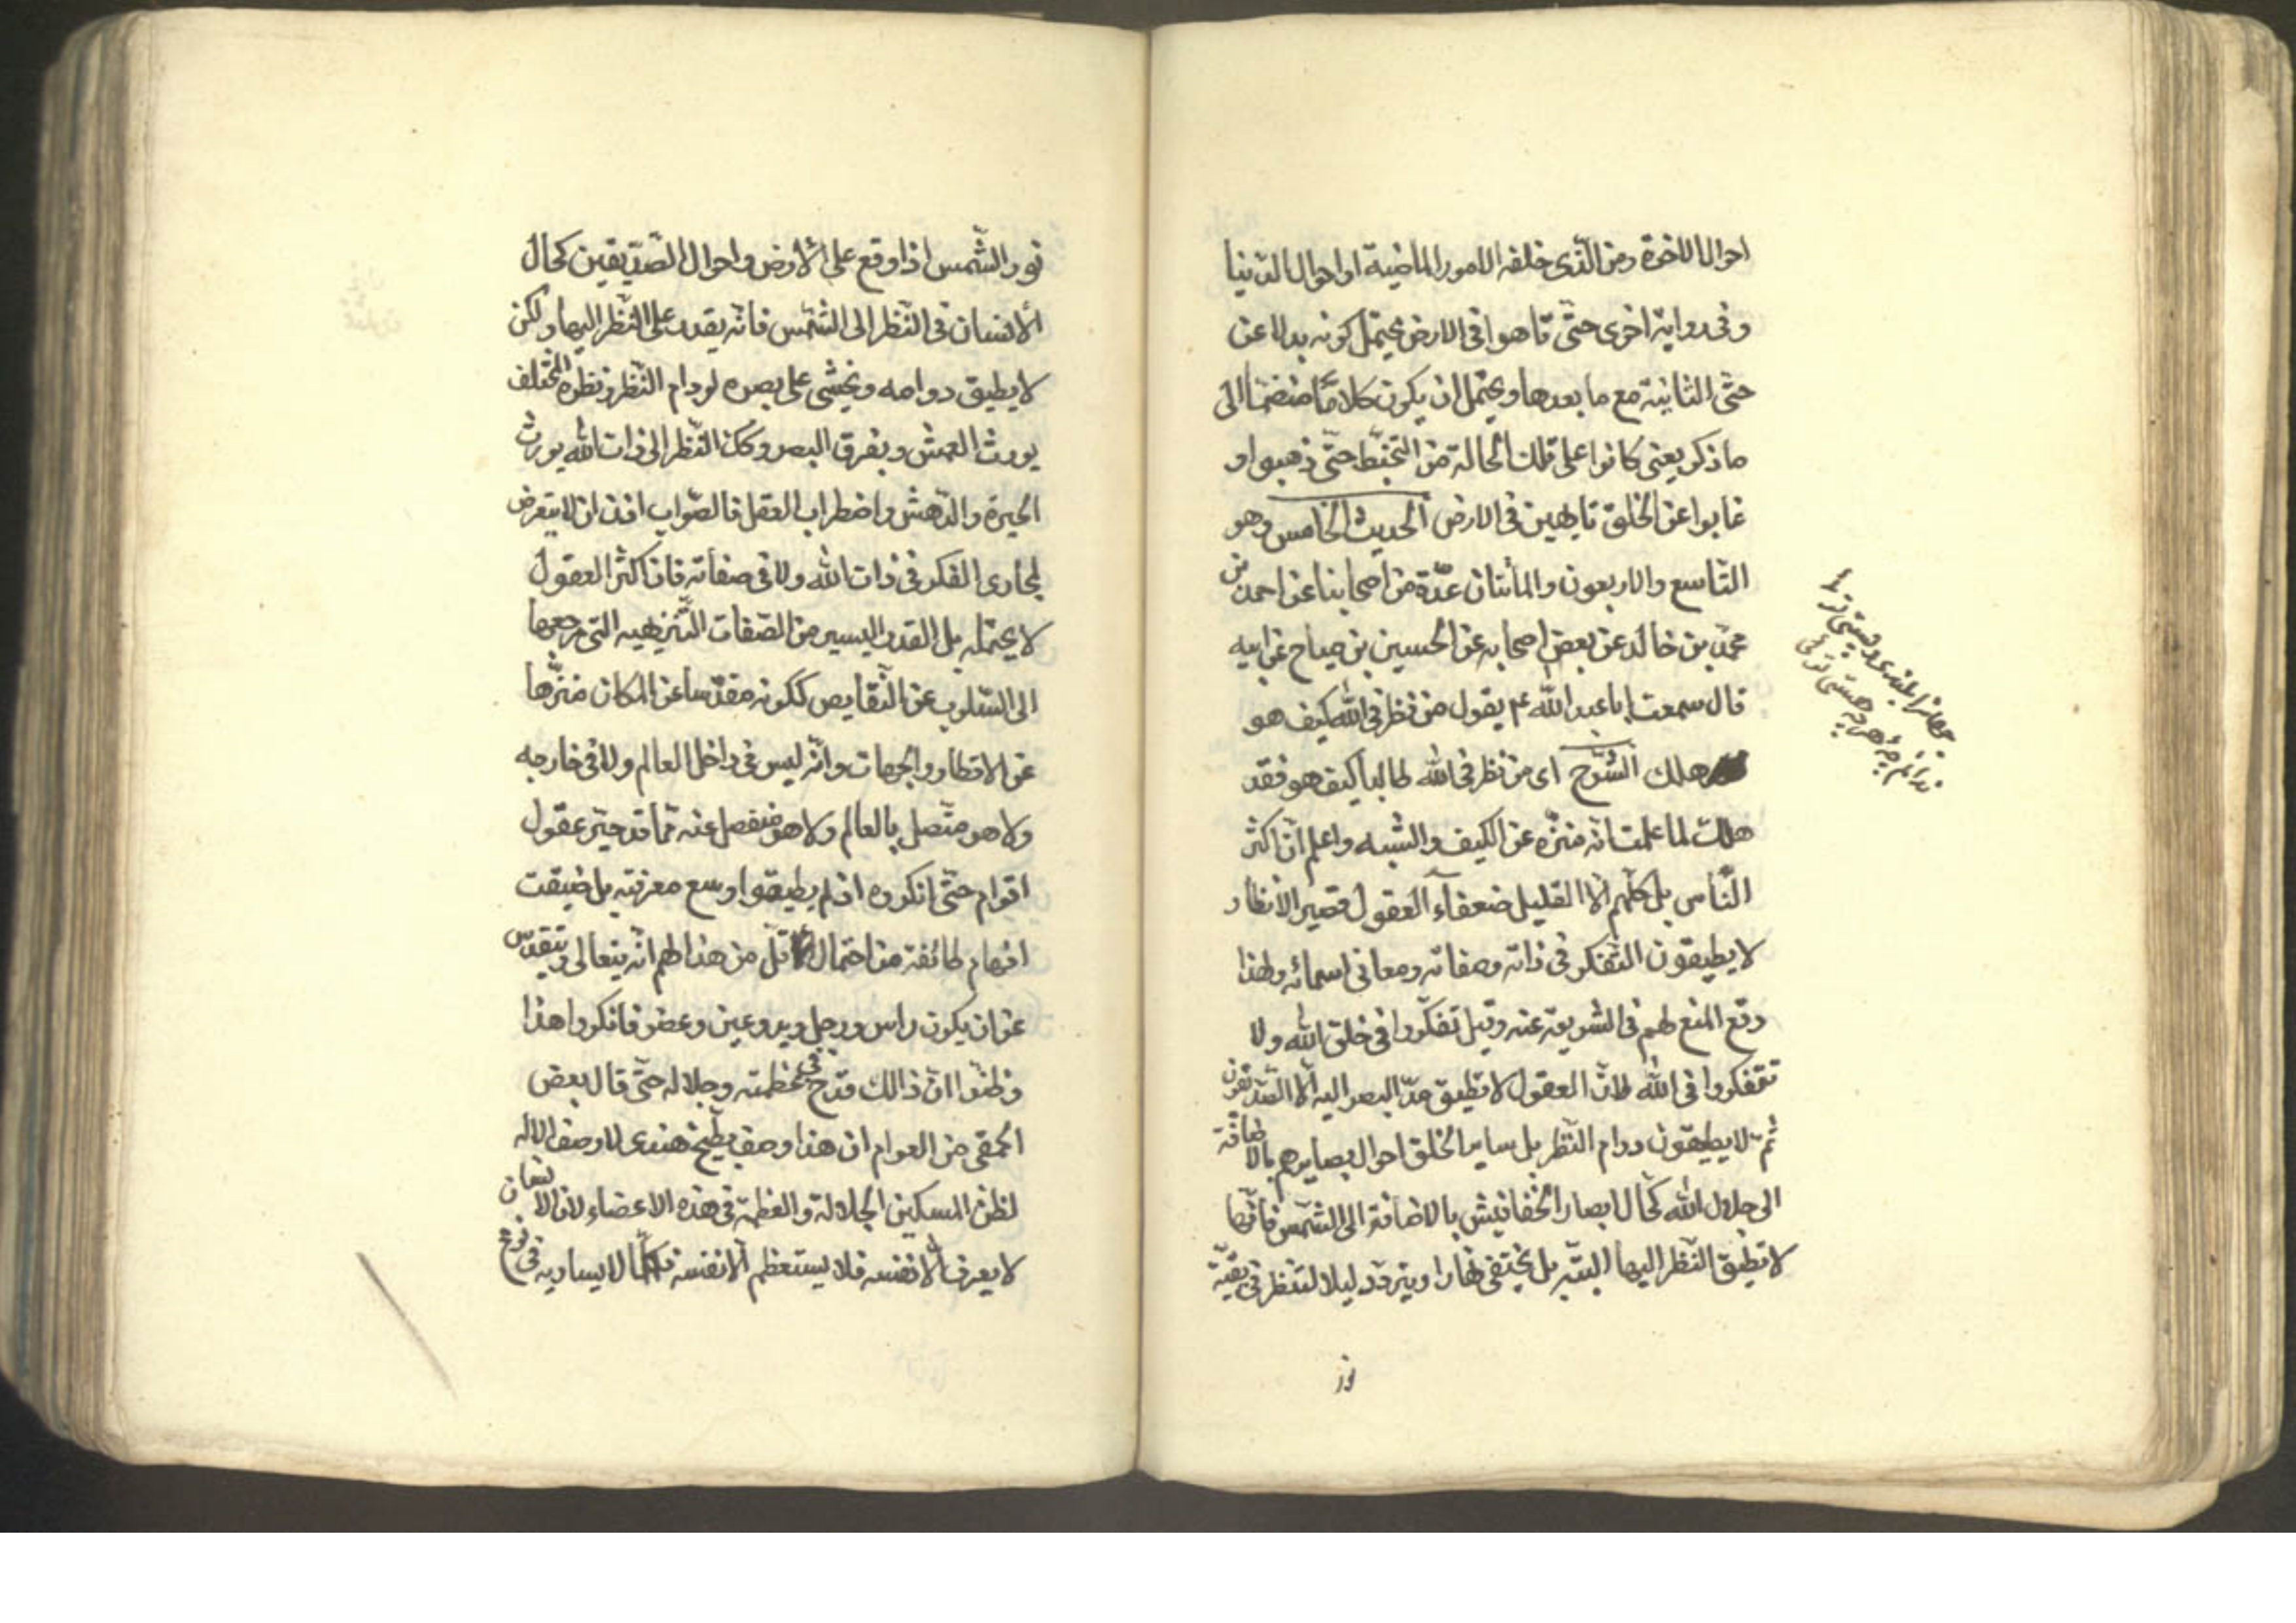 احوال الاخرة ومن الذى خلفه الامور الماضية او احوال الدنيا
وفى رواية اخرى حتّى تاهوا فى الارض يحتمل كونه بدلا عن
حتى الثانية مع ما بعدها ويحتمل ان يكون كلامًا منضمّا الى
ما ذكر يعنى كانوا على تلك الحالة من التخبّط حتّى ذهبوا و
غابوا عن الخلق تايهين فى الارض الحديث الخامس وهو
التاسع والاربعون والمأتان عدّة من اصحابنا عن احمد بن
محمّد بن خالد عن بعض اصحابه عن الحسين بن مياح عن ابيه
قال سمعت ابا عبد الله ع يقول من نظر فى الله كيف هو
هلك الشّرح اى من نظر فى الله طالبا كيف هو فقد
هلك لما علمت انّه منزّه عن الكيف والشّبه واعلم انّ اكثر
النّاس بل كلّهم الّا القليل ضعفاء العقول قصير الانظار
لا يطيقون التّفكر فى ذاته وصفاته ومعانى اسمائه ولهذا
وقع المنع لهم فى الشريعة عنه وقيل تفكّروا فى خلق الله ولا
تتفكروا فى الله لانّ العقول لا تطيق مدّ البصر اليه الّا الصّدّيقون
ثمّ لا يطيقون دوام النّظر بل ساير الخلق احوال بصايرهم بالاضافة
الى جلال الله كحال ابصار الخفافيش بالاضافة الى الشّمس فانّها
لا تطيق النّظر اليها البتّه بل يختفى نهارا ويتردّد ليلا لتنظر فى بقيّة
نور
جهان را بلندى و پستى توئى
ندانم چۀ هر چه هستى توئى
نور الشّمس اذا وقع على الأرض واحوال الصّدّيقين كحال
الأنسان فى النّظر الى الشّمس فانّه يقدر على النّظر اليها ولكن
لا يطيق دوامه ويخشى على بصره لو دام النّظر ونظره المختلف
يورث العمش ويفرق البصر وكك النّظر الى ذات الله يورث
الحيرة والدّهش واضطراب العقل فالصّواب اذن ان لا يتعرض
لمجارى الفكر فى ذات الله ولا فى صفاته فان اكثر العقول
لا يحتمله بل القدر اليسير من الصّفات التّنزيهيه التى مرجعها
الى السّلوب عن النّقايص ككونه مقدّسا عن المكان منزّها
عن الاقطار والجهات وانّه ليس فى داخل العالم ولا فى خارجه
ولا هو متّصل بالعالم ولا هو منفصل عنه ممّا قد حيّر عقول
اقوام حتّى انكروه اذ لم يطيقوا وسع معرفته بل ضيقت
افهام طائفة من احتمال اقلّ من هذا لهم انّه يتعالى ويتقدّس
عن ان يكون راس ورجل ويد وعين وعضو فانكروا هذا
وظنّوا انّ ذالك قدح فى عظمته وجلاله حتّى قال بعض
الحمقى من العوام ان هذا وصف بطّيخ هندى لا وصف الاله
لظن المسكين الجلالة والعظمة فى هذه الاعضاء لان الانسان
لا يعرف الّا نفسه فلا يستعظم الّا نفسه فكلّما لا يساويه فى نوع